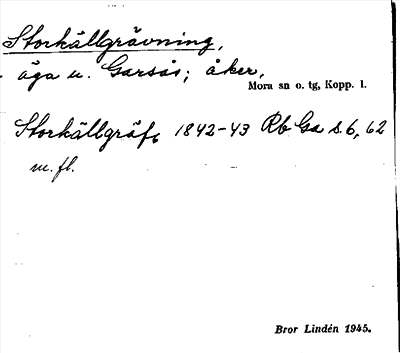 Storkällgrävning,
äga u. Garsås; åker,
Mora sn o. tg, Kopp. l.
Storkällgräfv 1842-43 Rb Ga s. 6, 62
m. fl.
Bror Lindén 1945.